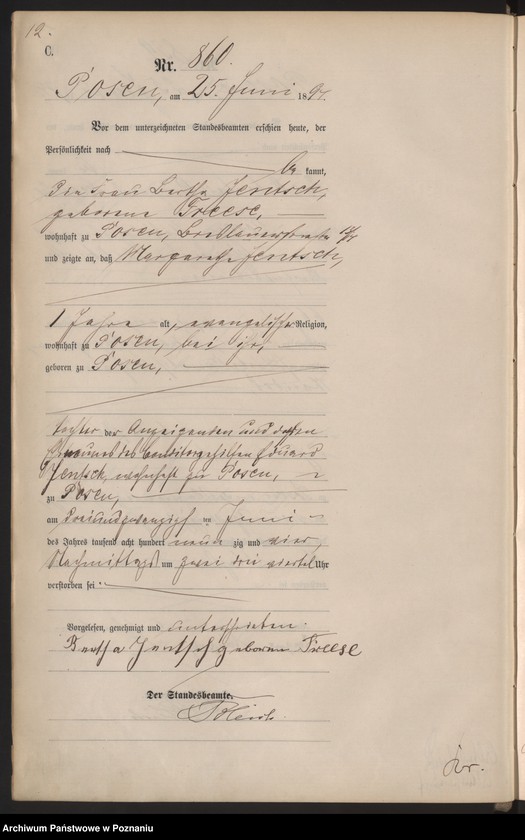 12.
C.
Nr. 860.
Posen, am 25. Juni 1894.
Vor dem unterzeichneten Standesbeamten erschien heute, der
Persönlichkeit nach
be kannt,
die Frau Bertha Jentsch,
geborene Freese,
wohnhaft zu Posen, Breslauerstraße
und zeigte an, daß Margarethe Jentsch,
1 Jahre alt, evangelischer Religion,
wohnhaft zu Posen, bei ihr,
geboren zu Posen,
Tochter der Anzeigenden und dessen
Ehemannes des Eduard
Jentsch, wohnhaft zu Posen,
zu Posen,
am dreiundzwanzigsten Juni
des Jahres tausend acht hundert neun zig und vier,
Nachmittags um zwei drei viertel Uhr
verstorben sei.
Vorgelesen, genehmigt und unterschrieben.
Bertha Jentsch geborene Freese
Der Standesbeamte.
Archiwum Państwowe w Poznaniu